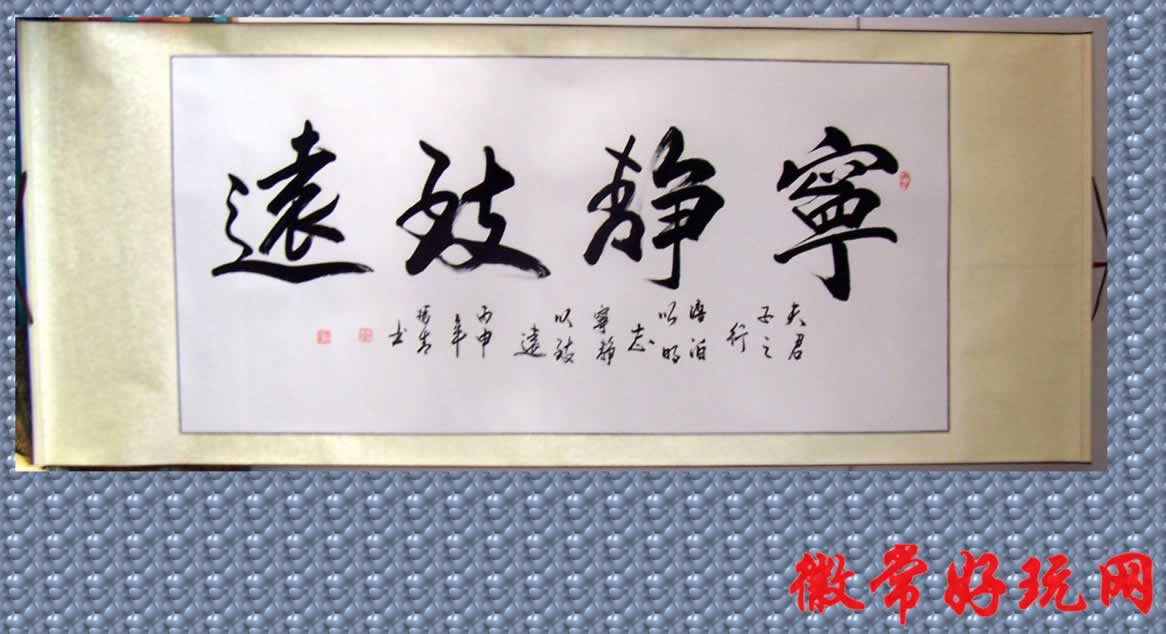 寧静致遠
夫君
子之
行
澹泊
以明
志
寧静
以致
遠
丙申
年
书
徽常好玩网